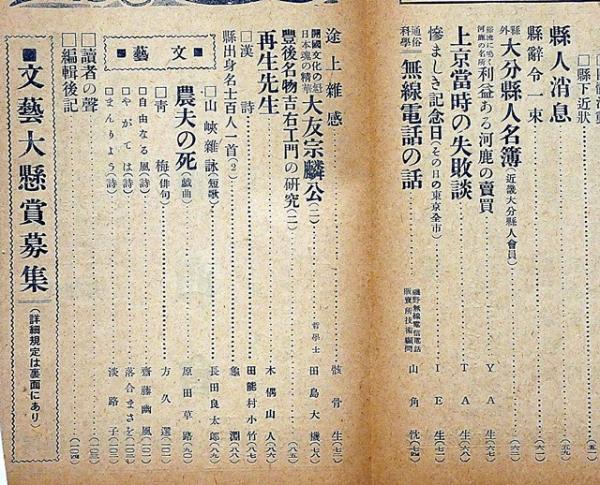 □縣下近狀……(五一)
縣人消息……(五九)
縣辭令一束……(六一)
縣外 大分縣人名簿(近畿大分縣人會員)……(六三)
利益ある河鹿の賣買……YA生(七六)
上京當時の失敗談……TA生(六八)
慘ましき記念日(その日の東京全市)……IE生(七二)
通俗科學 無線電話の話 磯野無線電信電話販賣所技術顧問 山角
途上雜感……骸骨生
開國文化の魁 日本魂の精華 大友宗麟公(二) 哲學士 田島大機
豐後名物吉右エ門の硏究(二)……(八五)
再生先生……木偶山人(八六)
□漢詩……田能村小竹(八七)
縣出身名士百人一首(2)……龜淵(八八)
□山峽雜詠(短歌)……長田良太郎(八九)
■文藝■
農夫の死(戲曲)……原田草路(九〇)
□靑梅(俳句)……方久選
□自由なる風(詩)……齋藤幽風
□やがては(詩)……落合まさを
□まんりよう(詩)……淡路子
□讀者の聲
□編輯後記……(一〇四)
文藝大懸賞募集(詳細規定は裏面にあり)